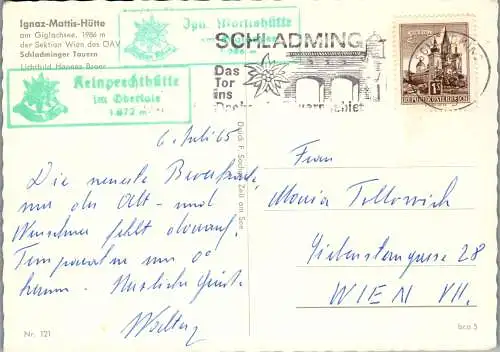 Ignaz-Mattis-Hütte
am Giglachsee, 1986 m
der Sektion Wien des ÖAV
Schladminger Tauern
Lichtbild Hannes
Ign. Mattishütte
1986 m
Keinprechthütte
im Obertale
1872 m
SCHLADMING
Das
Tor
ins
REPUBLIK ÖSTERREICH
6. Juli 65
Die neueste
nur der Alt- und
fehlt darauf.
Temperatur um 0°
herum. Herzliche Grüße
Walter
Druck F. Sochor, Zell am See
Frau
Maria
Siebensterngasse 28
WIEN VII.
Nr. 121
bco 5